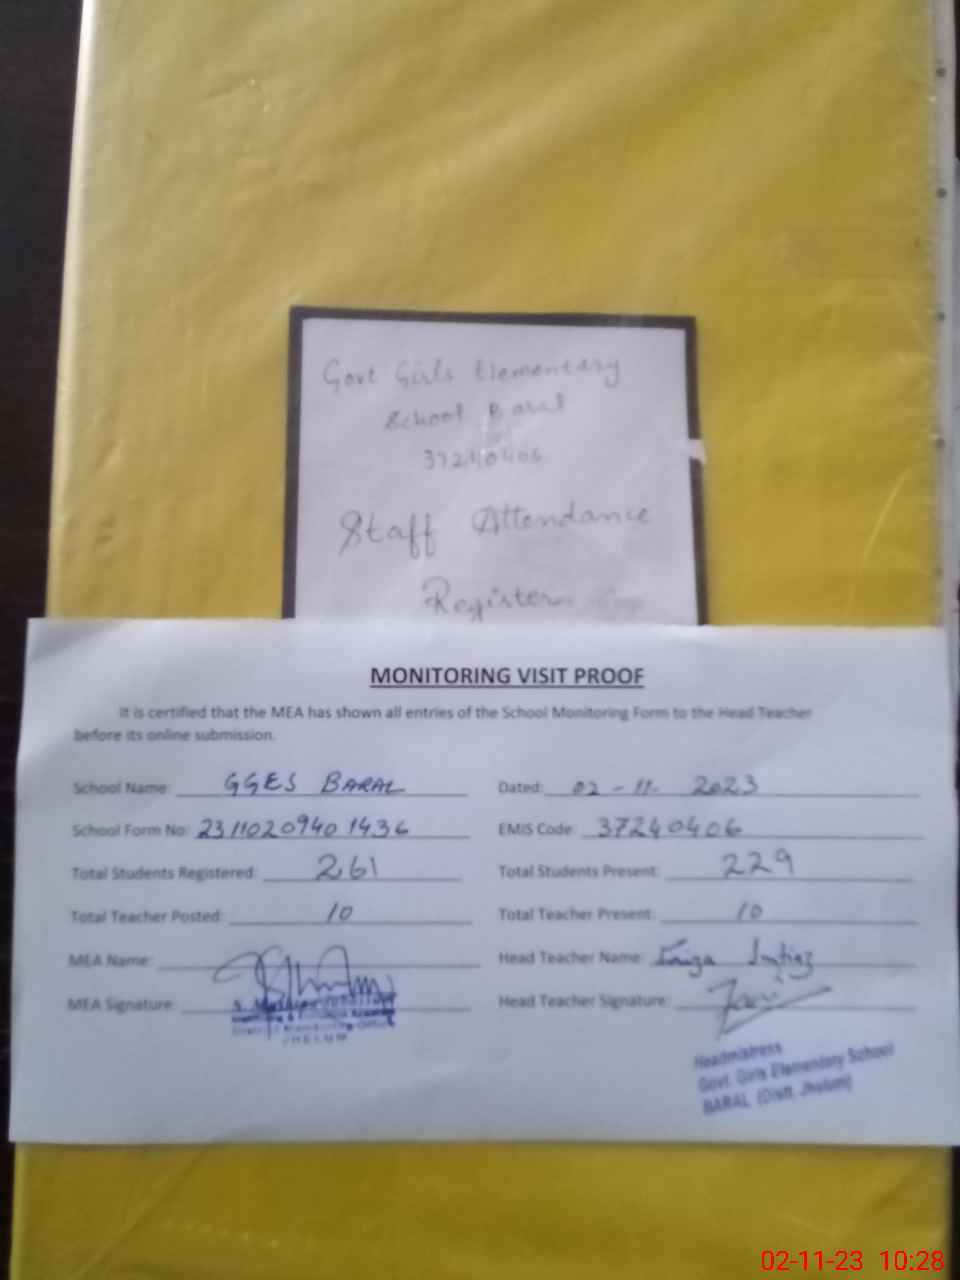 Govt Girls Elementary
School Baral
37240406
Staff Attendance
Register
MONITORING VISIT PROOF
It is certified that the MEA has shown all entries of the School Monitoring Form to the Head Teacher
before its online submission.
School Name: GGES BARAL Dated: 02-11-2023
School Form No: 23110209401436 EMIS Code: 37240406
Total Students Registered: 261 Total Students Present: 229
Total Teacher Posted: 10 Total Teacher Present: 10
MEA Name: Head Teacher Name: Faiza Imtiaz
MEA Signature: Head Teacher Signature:
District Monitoring Office
JHELUM
Headmistress
Govt. Girls Elementary School
BARAL (Distt. Jhelum)
02-11-23 10:28